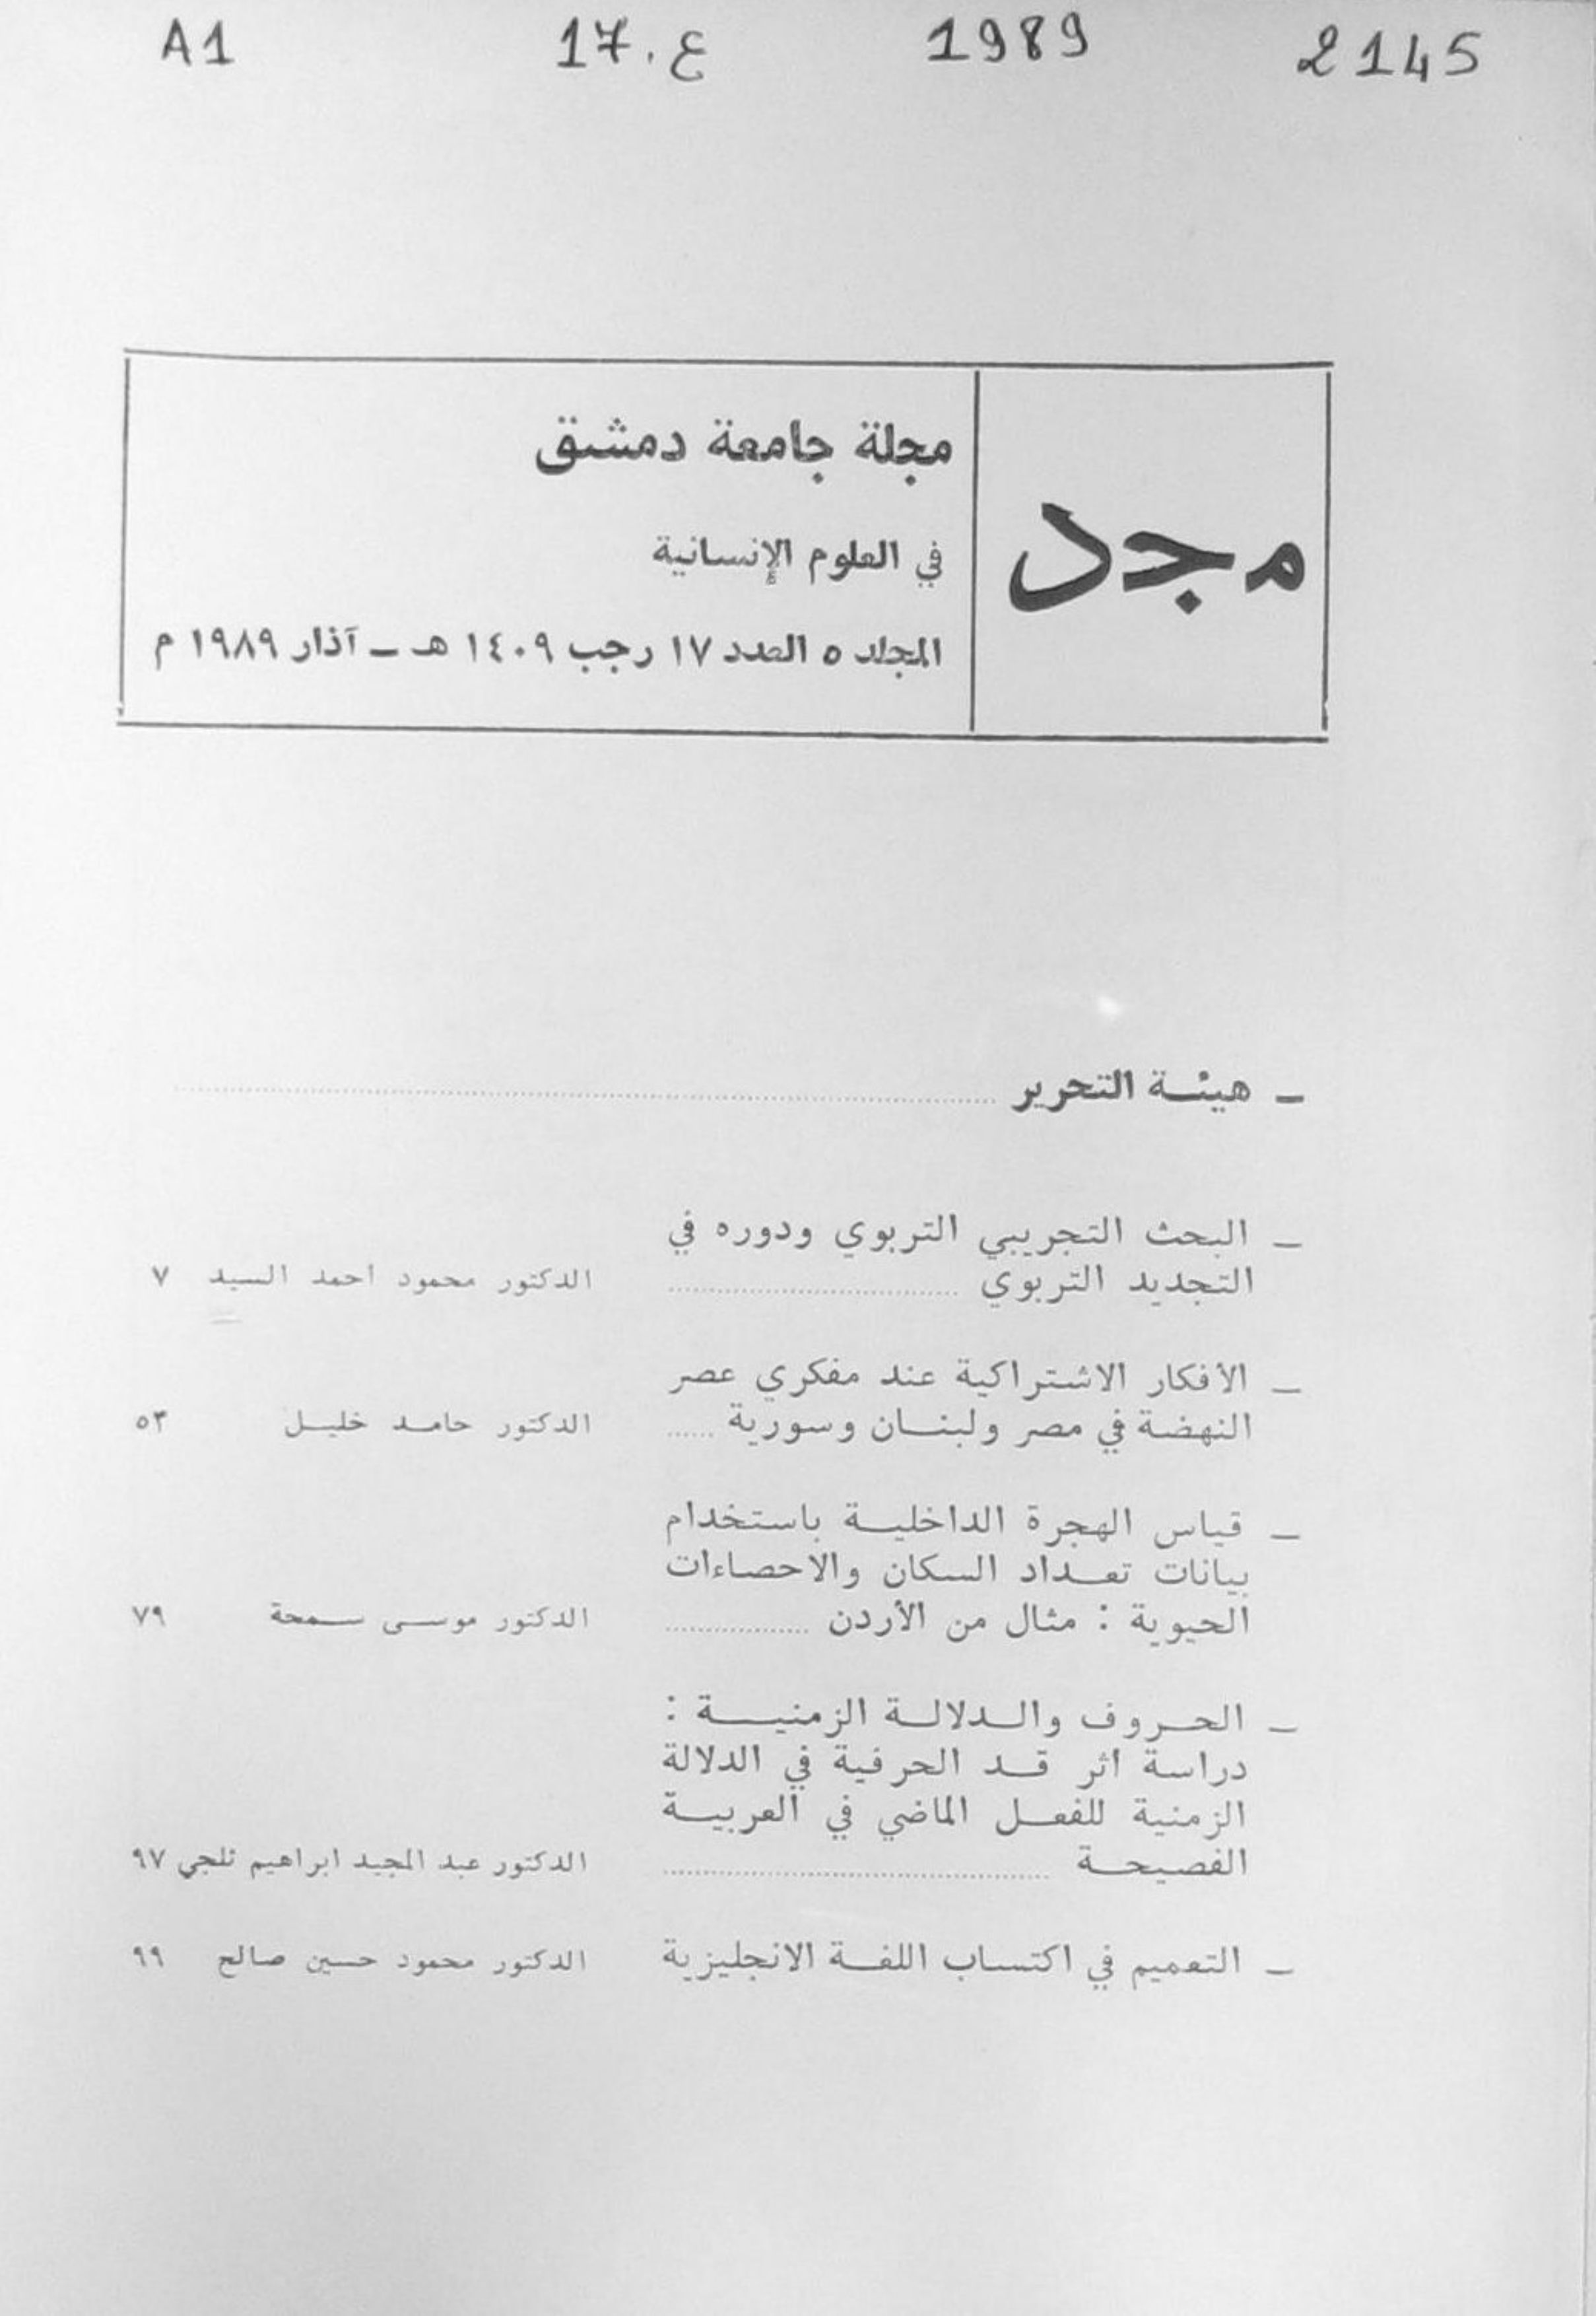 A1 17.ع 1989 2145
مجد
مجلة جامعة دمشق
في العلوم الإنسانية
المجلد ٥ العدد ١٧ رجب ١٤٠٩ هـ ـ آذار ١٩٨٩ م
ـ هيئة التحرير
ـ البحث التجريبي التربوي ودوره في
التجديد التربوي ........ الدكتور محمود أحمد السيد ٧
ـ الأفكار الاشتراكية عند مفكري عصر
النهضة في مصر ولبنان وسورية ...... الدكتور حامد خليل ٥٣
ـ قياس الهجرة الداخلية باستخدام
بيانات تعداد السكان والاحصاءات
الحيوية : مثال من الأردن ........ الدكتور موسى سمحة ٧٩
ـ الحروف والدلالة الزمنية :
دراسة أثر قد الحرفية في الدلالة
الزمنية للفعل الماضي في العربية
الفصيحة ........ الدكتور عبد المجيد ابراهيم ثلجي ٩٧
ـ التعميم في اكتساب اللغة الانجليزية الدكتور محمود حسين صالح ٩٩